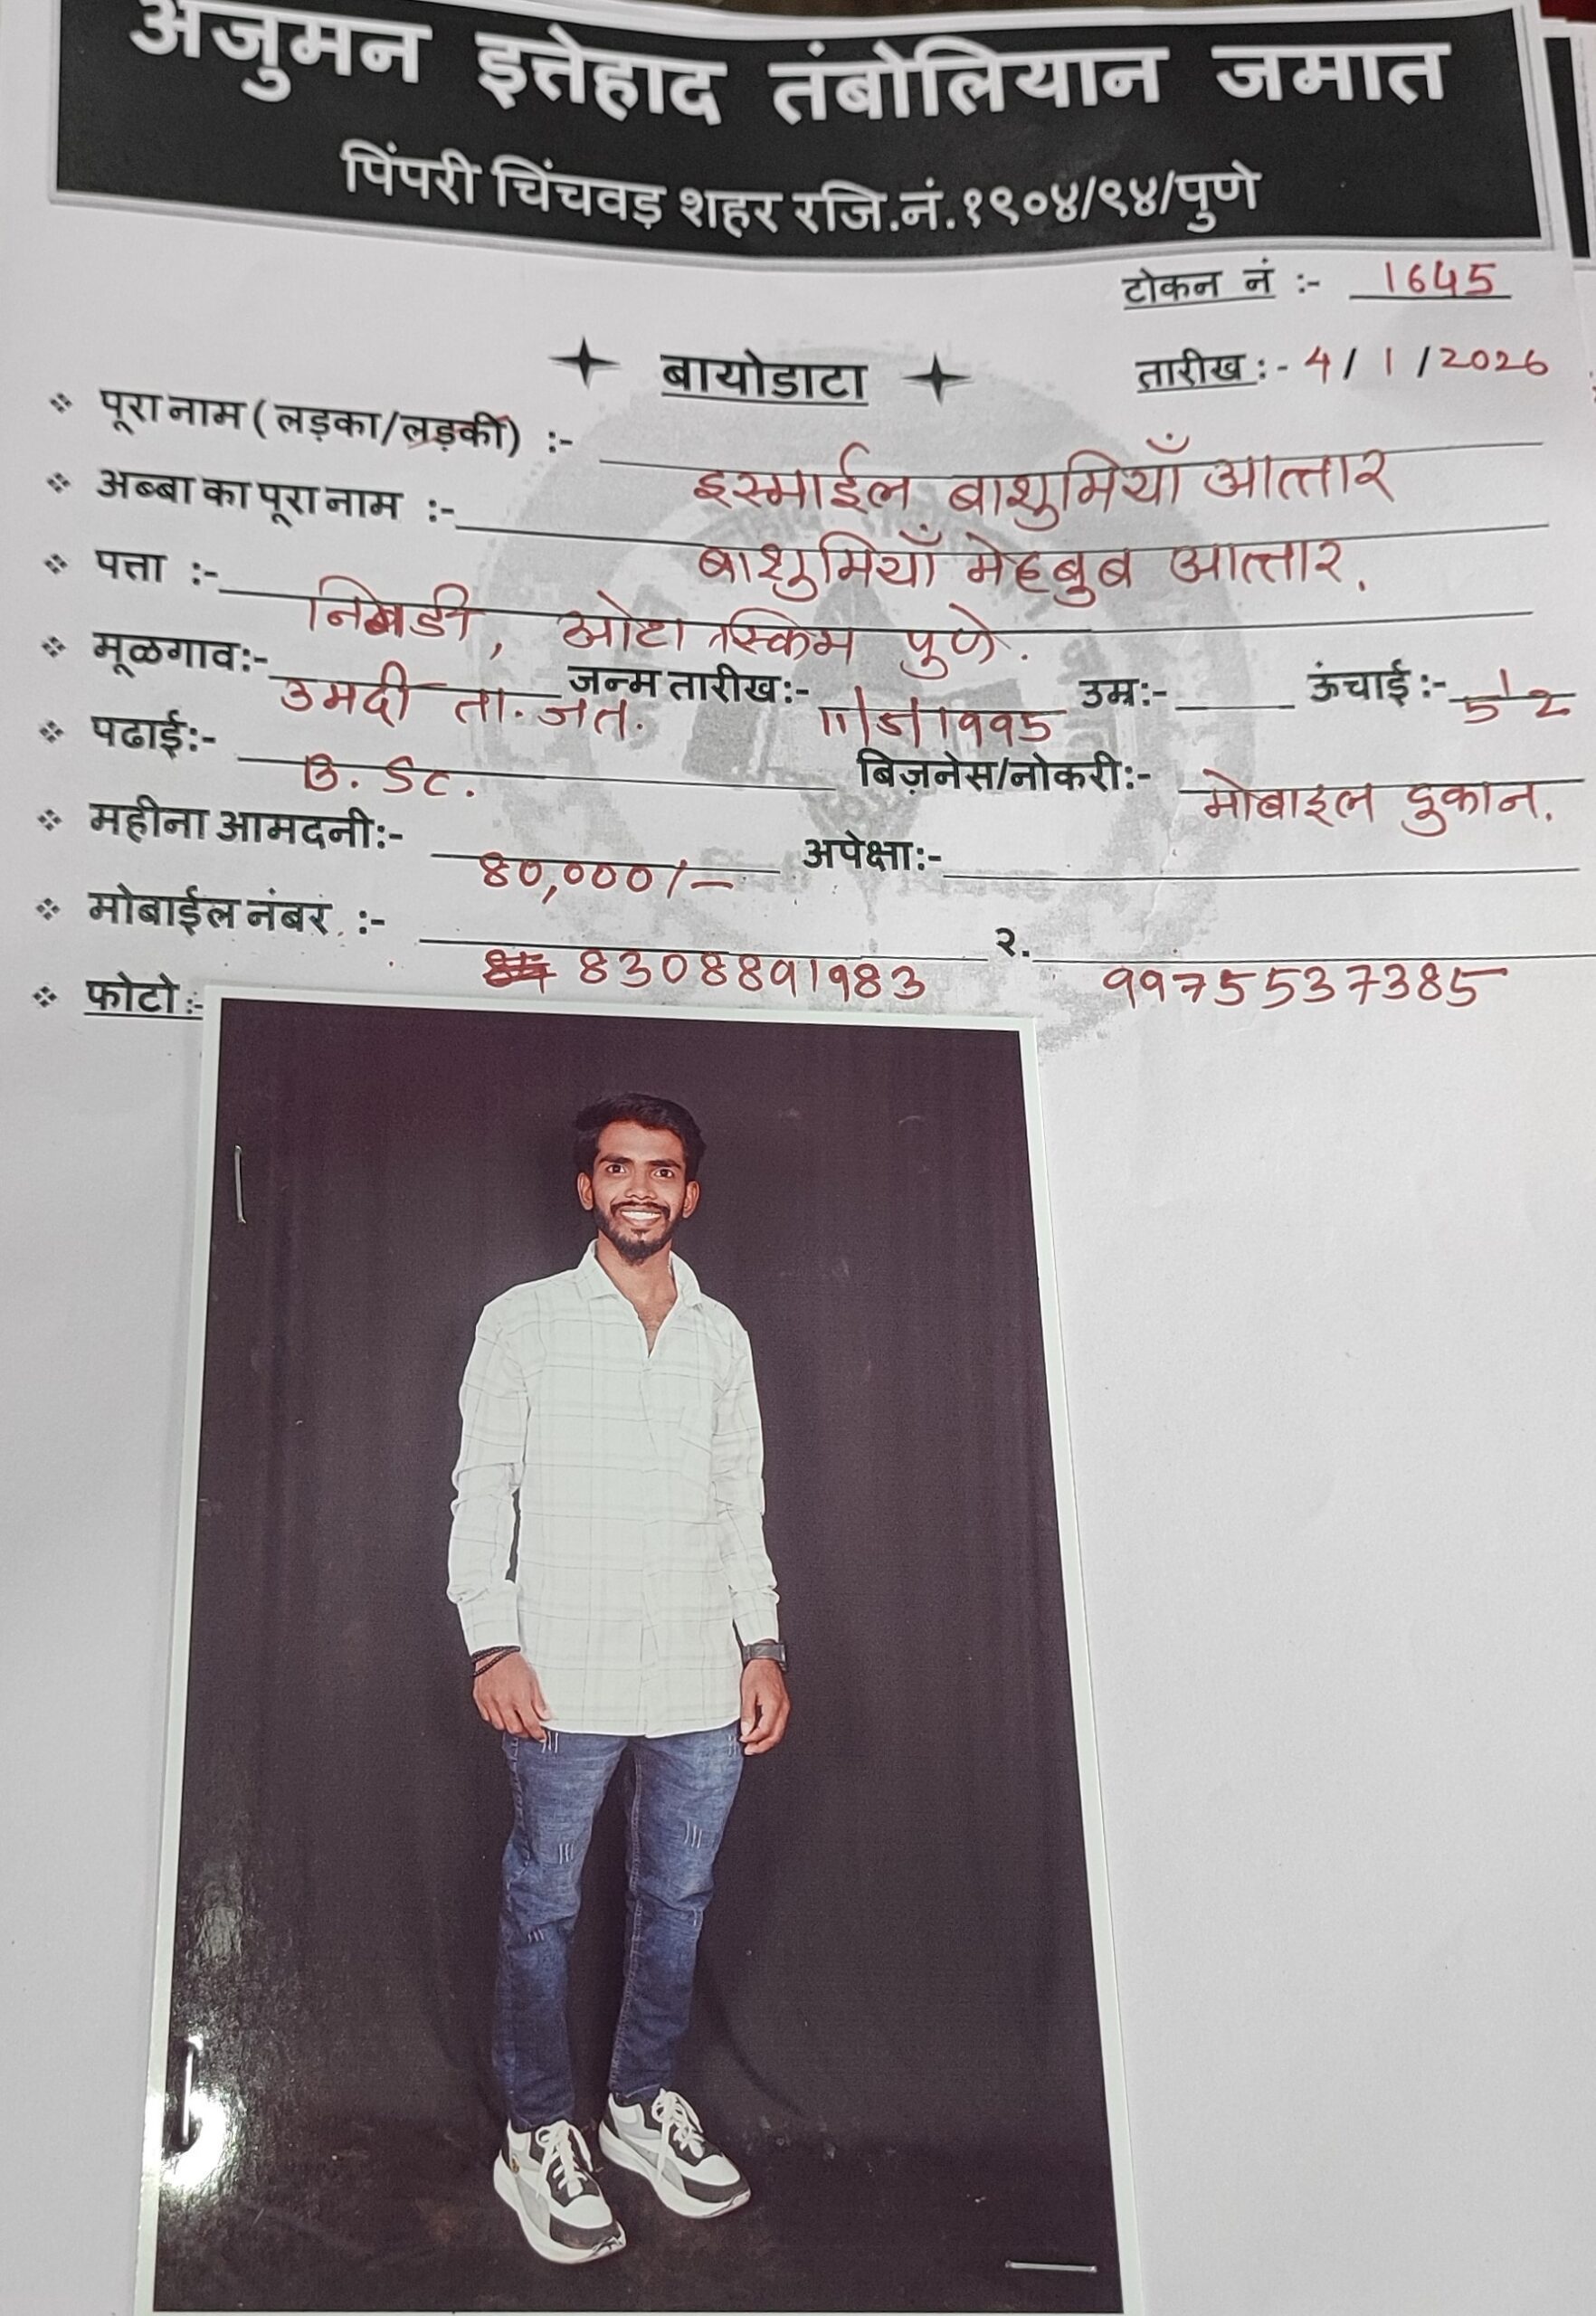 अंजुमन इत्तेहाद तंबोलियान जमात
पिंपरी चिंचवड़ शहर रजि.नं.१९०४/९४/पुणे
टोकन नं :- 1645
बायोडाटा
तारीख :- 4/1/2026
पूरा नाम ( लड़का/लड़की) :- इस्माईल बाशुमियाँ आत्तार
अब्बा का पूरा नाम :- बाशुमियाँ मेहबुब आत्तार.
पत्ता :- ओटा स्किम पुणे.
मूळगाव:- उमदी ता. जत. जन्म तारीख:- 11/5/1995 उम्र:- ऊंचाई :- 5'2
पढाई:- B. Sc. बिज़नेस/नोकरी:- मोबाइल दुकान.
महीना आमदनी:- 80,000/- अपेक्षा:-
मोबाईल नंबर :- 8308891983 २. 9975537385
फोटो :-